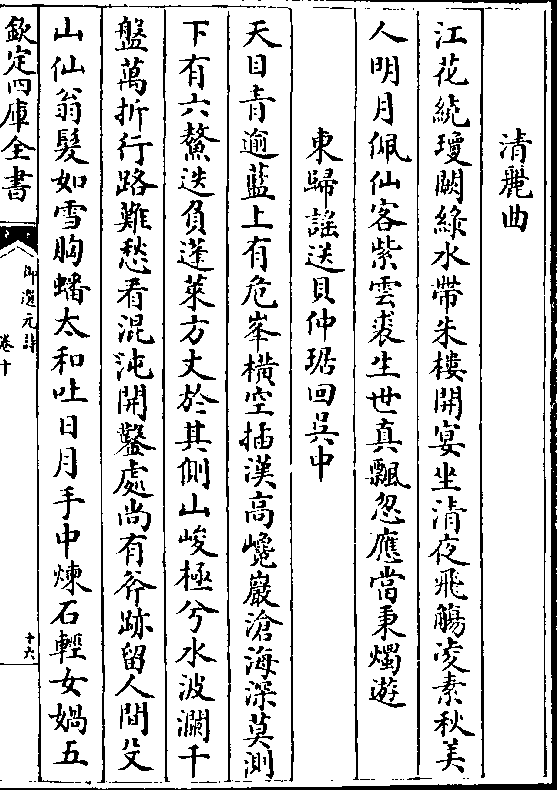 清麗曲
江花繞瓊闕綠水帶朱樓開宴坐清夜飛觴凌素秋美
人明月佩仙客紫雲裘生世真飄忽應當秉燭遊
東歸謡送貝仲琚回吳中
天目青逾藍上有危峯橫空插漢高巉巖滄海深莫測
下有六鰲迭負蓬萊方丈於其側山峻極兮水波瀾千
盤萬折行路難愁看混沌開鑿處尚有斧跡留人間攻
山仙翁髮如雪胸蟠太和吐日月手中煉石輕女媧五
欽定四庫全書
御選元詩
卷十
十六